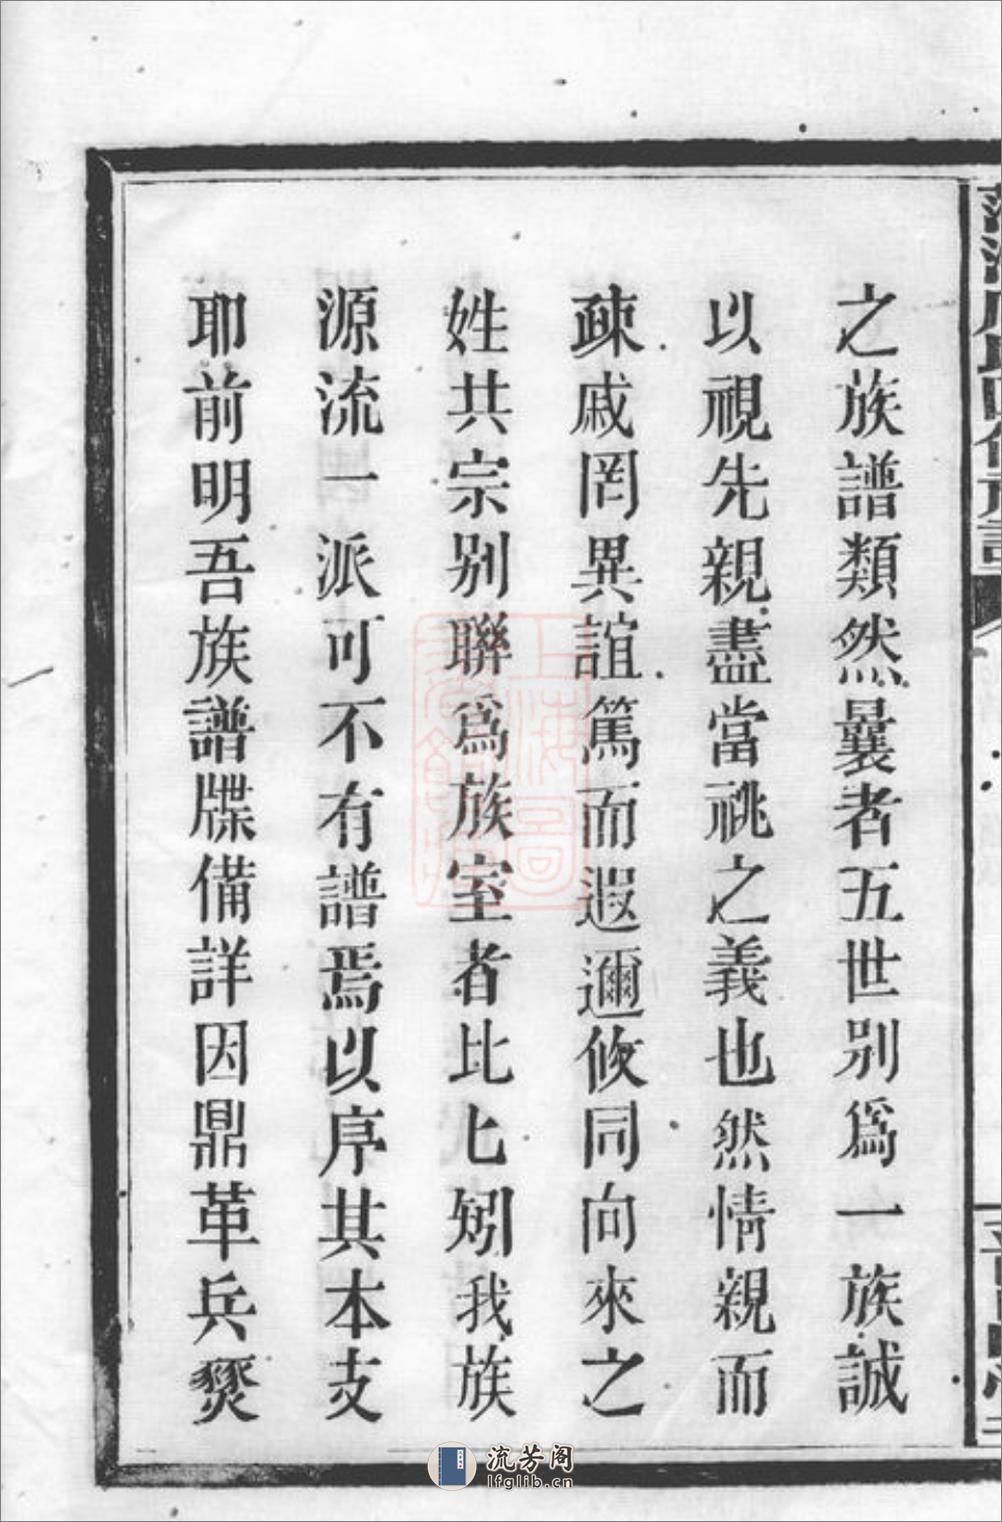 之族譜類然曩者五世別爲一族誠
以視先親盡當祧之義也然情親而
疎戚罔異誼篤而遐邇攸同向來之
姓共宗別聯爲族室者比匕矧我族
源流一派可不有譜焉以序其本支
耶前明吾族譜牒備詳因鼎革兵燹
流芳阁
lfglib.cn